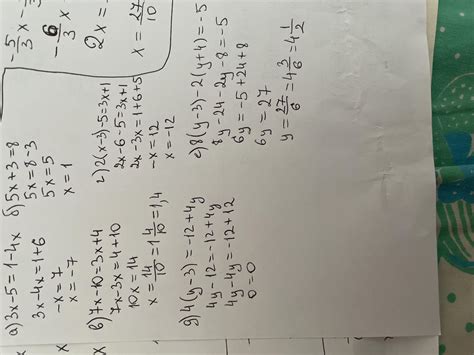 а) 3x-5=1-4x
3x-4x=1+6
-x=7
x=-7
б) 5x+3=8
5x=8-3
5x=5
x=1
-5/3 x -
-6/3 x
2x=
x=27/10
в) 7x-10=3x+4
7x-3x=4+10
10x=14
x=14/10=1 4/10=1,4
г) 2(x-3)-5=3x+1
2x-6-5=3x+1
2x-3x=1+6+5
-x=12
x=-12
д) 4(y-3)=-12+4y
4y-12=-12+4y
4y-4y=-12+12
0=0
е) 8(y-3)-2(y+4)=-5
8y-24-2y-8=-5
6y=-5+24+8
6y=27
y=27/6=4 3/6=4 1/2